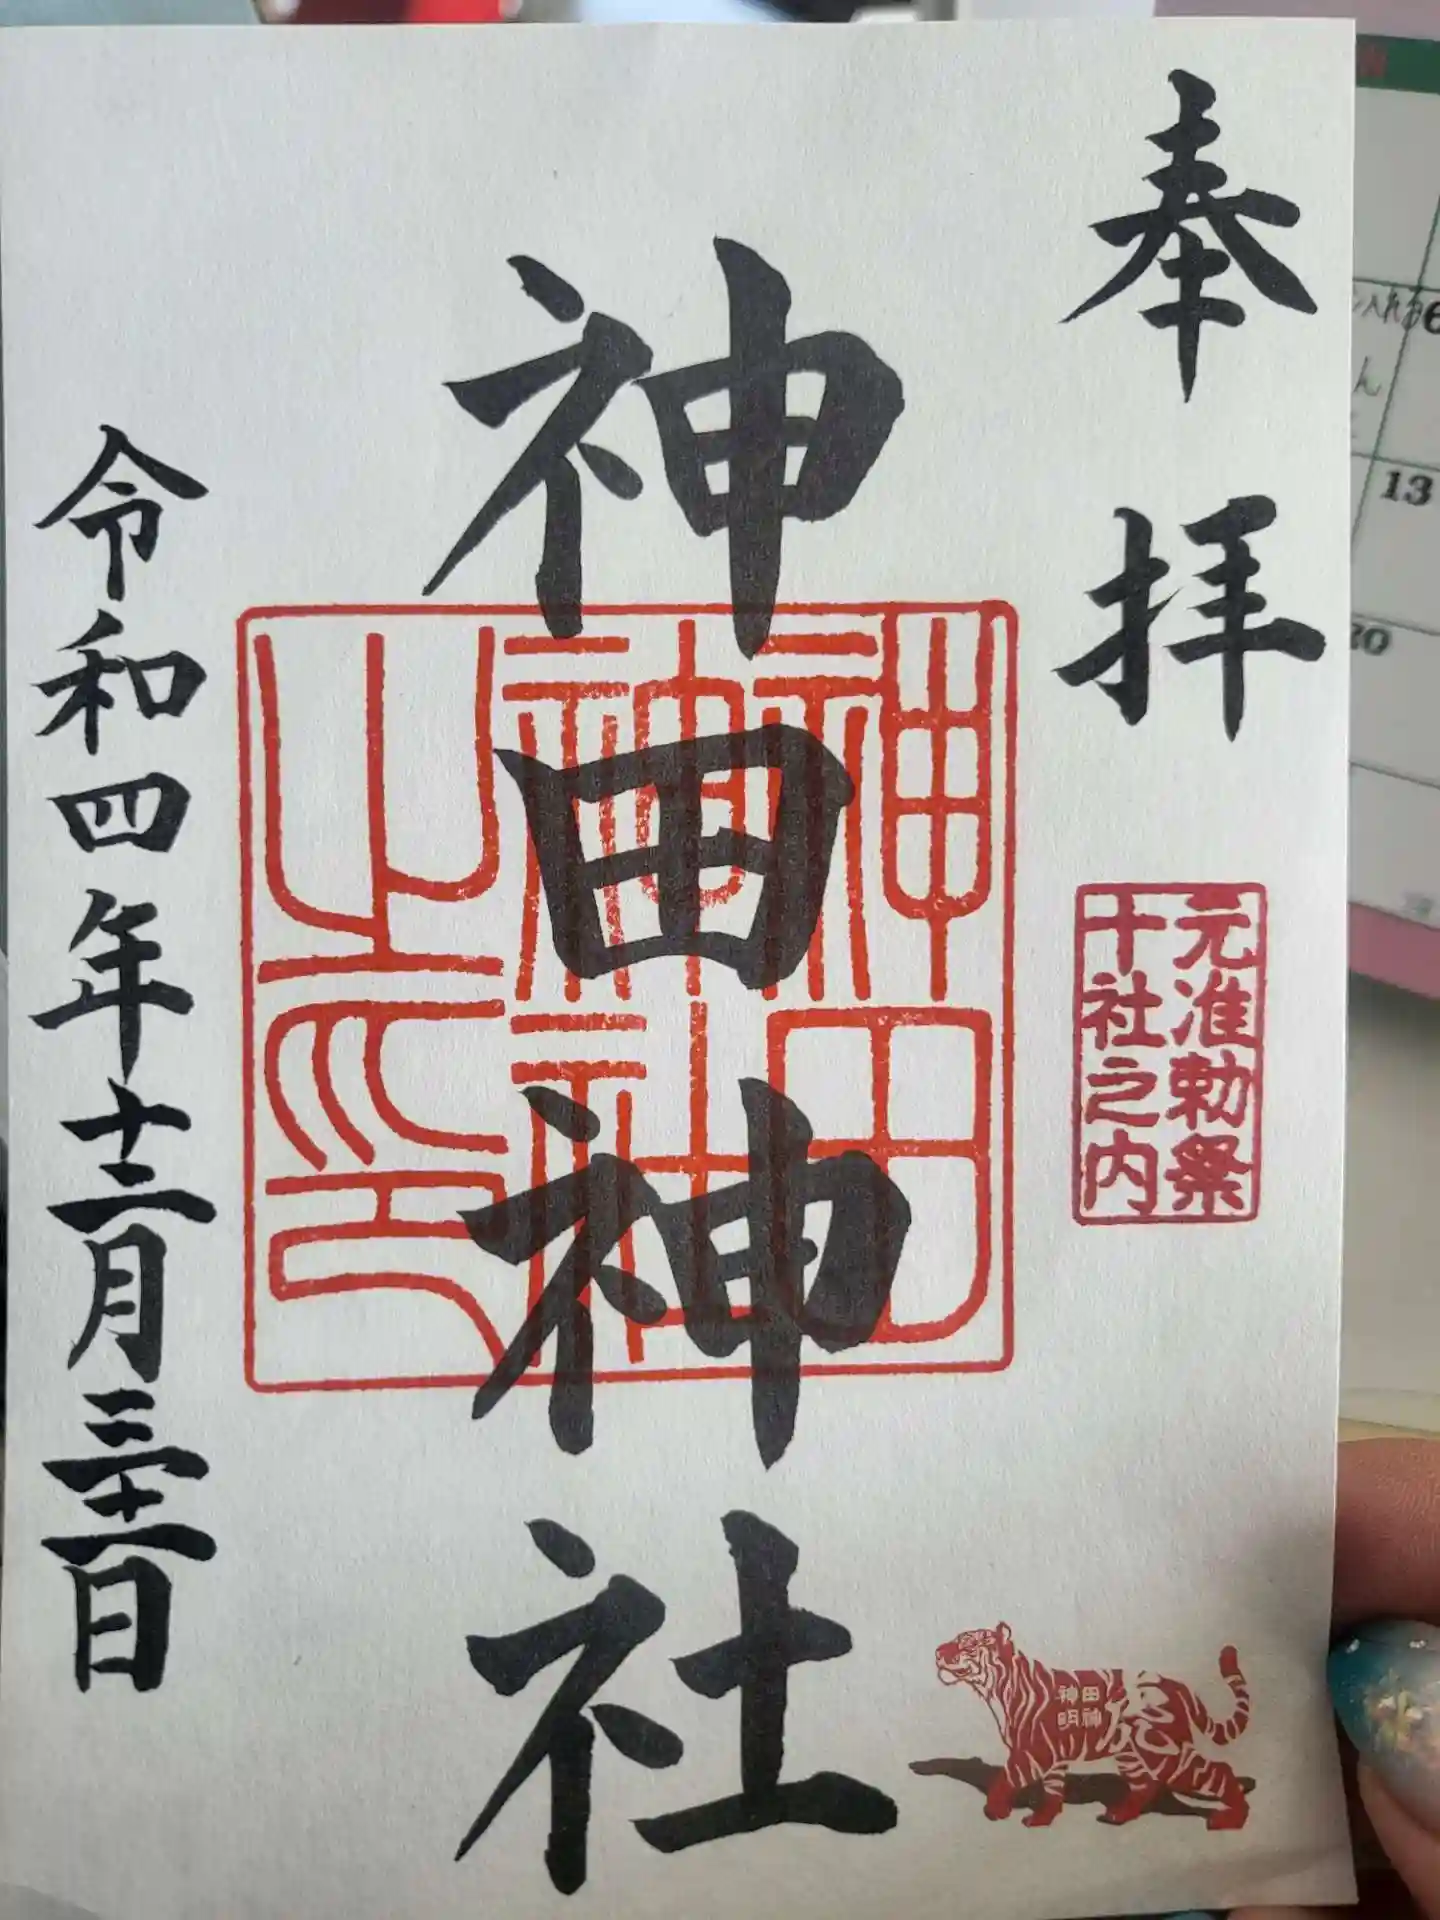 奉拝
元准勅祭
十社之内
神田神社
神田
神社
之印
田神
神明
虎
令和四年十二月三十一日
13
20
6